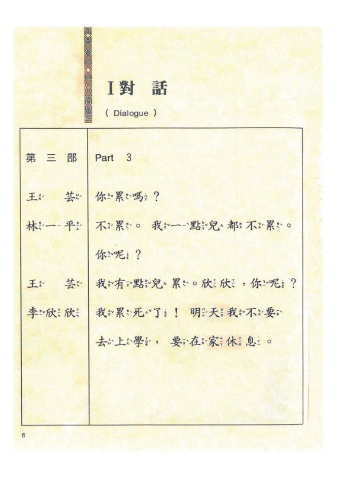 I 對 話
( Dialogue )
第 三 部 Part 3
王 芸 你累嗎？
林一平 不累。我一點兒都不累。
你呢？
王 芸 我有點兒累。欣欣，你呢？
李欣欣 我累死了！明天我不要
去上學，要在家休息。
6